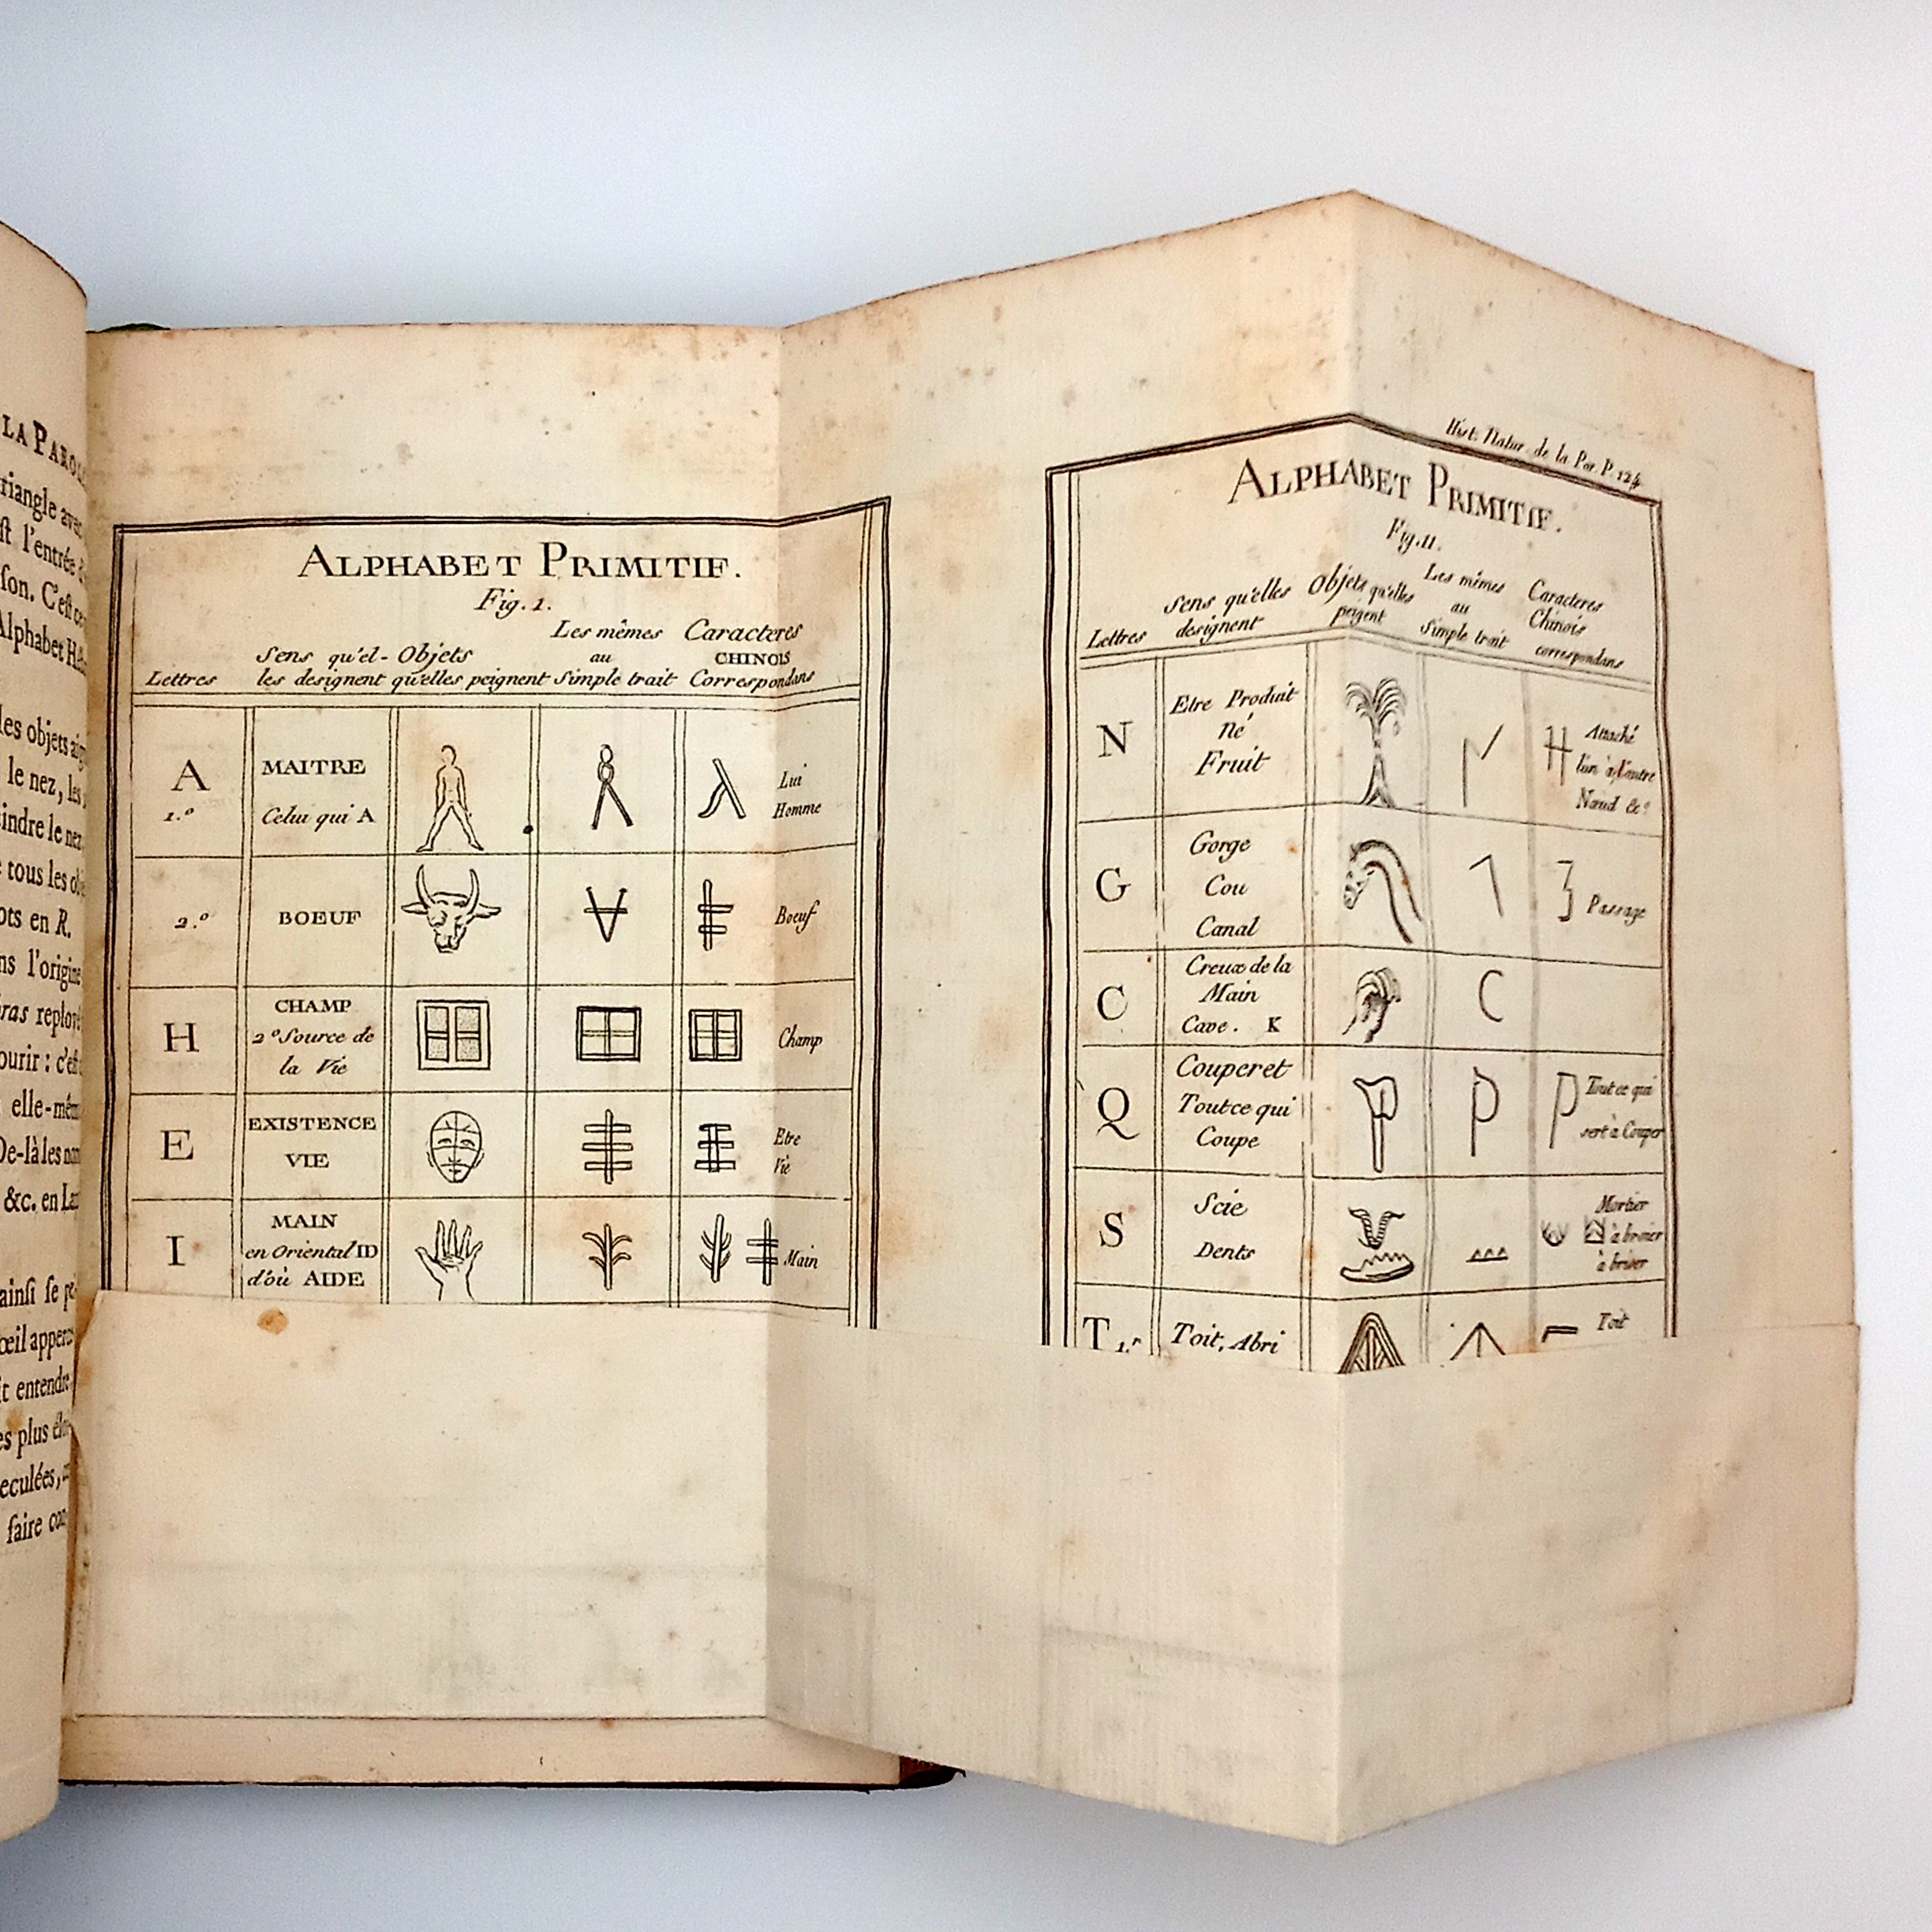 LA PAROLE
riangle avec
ſt l'entrée
ſon. C'eſt
Alphabet
les objets
le nez, les
eindre le nez
tous les
ots en R.
ns l'origine
bras
ourir : c'eſt
elle-même
De-là les
&c. en
ainſi ſe
œil
it entendre
es plus
eculées,
faire
ALPHABET PRIMITIF.
Fig. 1.
Lettres
Sens qu'el-
les designent
Objets
qu'elles peignent
Les mêmes
au
Simple trait
Caracteres
CHINOIS
Correspondans
A
1.º
MAITRE
Celui qui A
Lui
Homme
2.º
BOEUF
Boeuf
H
CHAMP
2º Source de
la Vie
Champ
E
EXISTENCE
VIE
Etre
Vie
I
MAIN
en Oriental ID
d'où AIDE
Main
Hist. Natur. de la Par. P. 124
ALPHABET PRIMITIF.
Fig. II.
Lettres
Sens qu'elles
designent
Objets qu'elles
peigent
Les mêmes
au
Simple trait
Caracteres
Chinois
correspondans
N
Etre Produit
né
Fruit
Attaché
l'un à l'autre
Nœud &c
G
Gorge
Cou
Canal
Passage
C
Creux de la
Main
Cave. K
Q
Couperet
Tout ce qui
Coupe
Tout ce qui
sert à Couper
S
Scie
Dents
Mortier
à broier
à briser
T 1.º
Toit, Abri
Toit